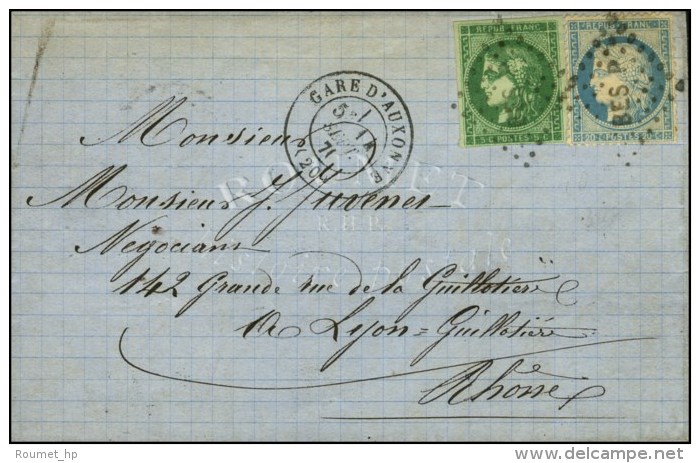 REPUB · FRANC
REPUB · FRANC
5 c POSTES 5 c
20 c POSTES 20 c
BES P.
GARE D'AUXONNE
5e /
SEPT.
71
(20)
Monsieur
Monsieur J. Juvenet
Negociant
142 Grande rue de la Guillotière
a Lyon = Guillotière
Rhône
ROUMET
Roumet_hp
delcampe.net